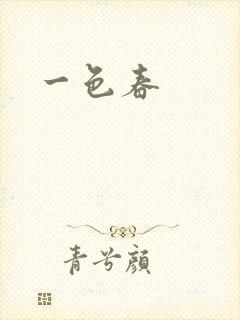 一色春
青兮颜